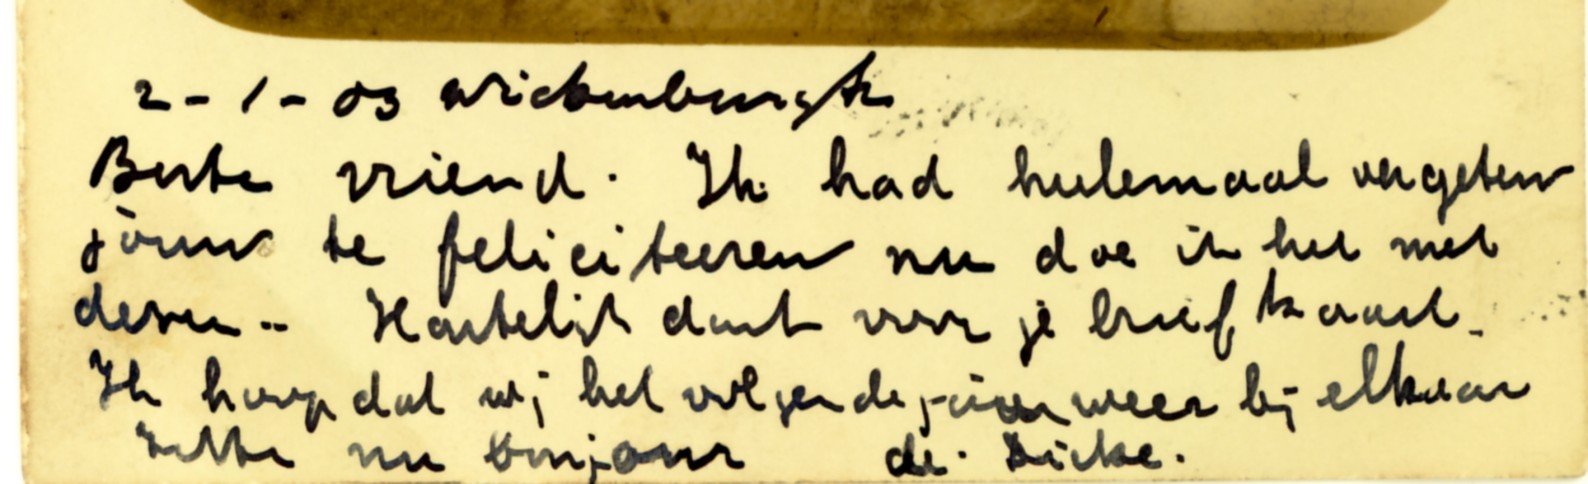 2-1-03 Wickenburgh
Beste vriend. Ik had heelemaal vergeten
jouw te feliciteeren nu doe ik het met
dezen.. Hartelijk dank voor je briefkaart.
Ik hoop dat wij het volgende jaar weer bij elkaar
zitte nu bonjour de Dicke.